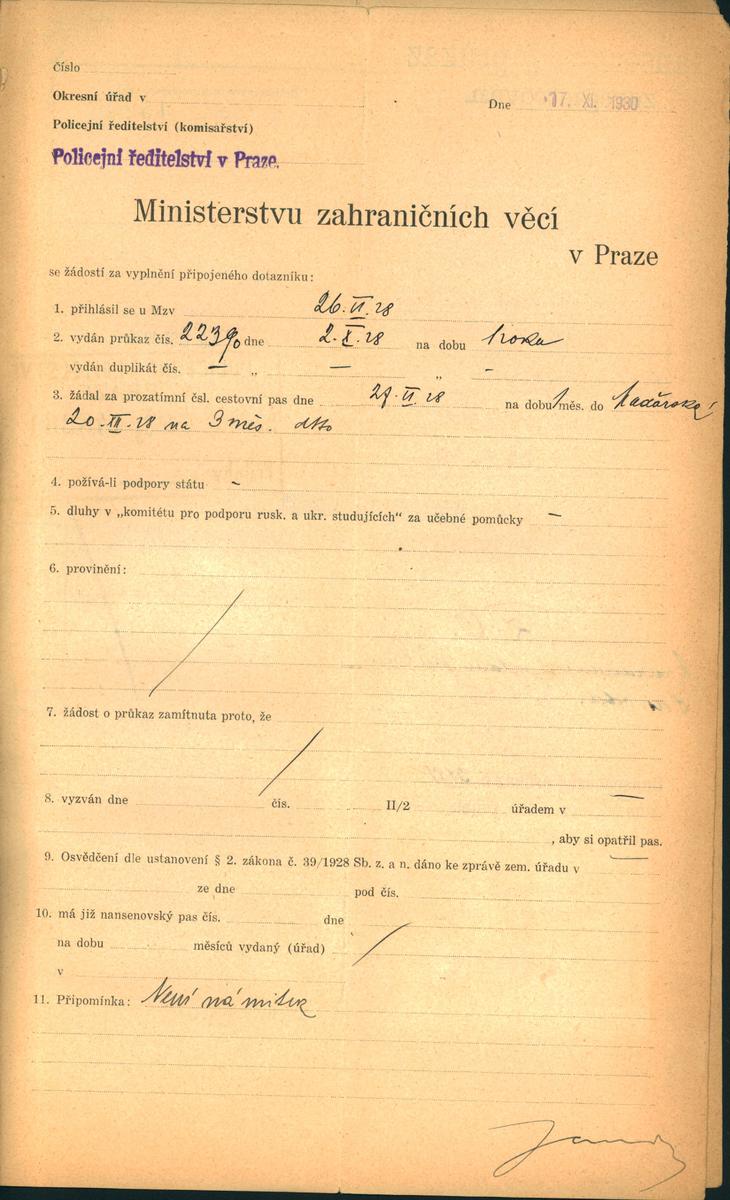 číslo
Okresní úřad v
Dne 17. XI. 1930
Policejní ředitelství (komisařství)
Policejní ředitelství v Praze.
Ministerstvu zahraničních věcí
v Praze
se žádostí za vyplnění připojeného dotazníku:
1. přihlásil se u Mzv 26. VI. 28
2. vydán průkaz čís. dne 2. X. 28 na dobu 1 roku
vydán duplikát čís. — „ — „ -
3. žádal za prozatímní čsl. cestovní pas dne 27. VI. 28 na dobu 1 měs. do Maďarska
20. XII. 28 na 3 měs. dtto
4. požívá-li podpory státu -
5. dluhy v „komitétu pro podporu rusk. a ukr. studujících“ za učebné pomůcky —
6. provinění:
7. žádost o průkaz zamítnuta proto, že
8. vyzván dne čís. II/2 úřadem v —
, aby si opatřil pas.
9. Osvědčení dle ustanovení § 2. zákona č. 39/1928 Sb. z. a n. dáno ke zprávě zem. úřadu v —
ze dne pod čís.
10. má již nansenovský pas čís. dne
na dobu měsíců vydaný (úřad)
v
11. Připomínka: Není námitek